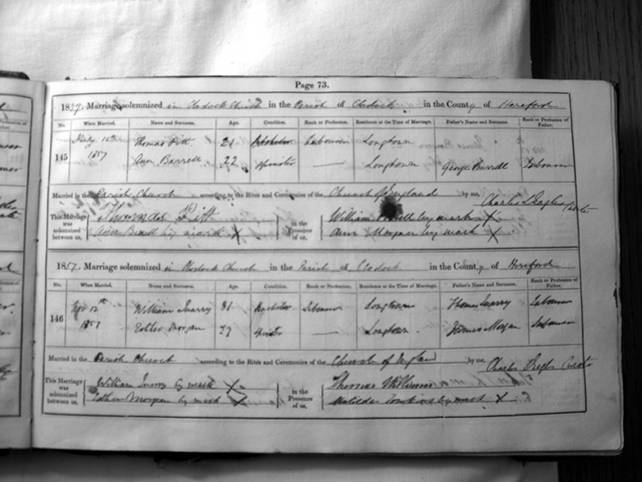 Page 73.
1857. Marriage solemnized in Clodock Church in the Parish of Clodock in the County of Hereford
No. When Married. Name and Surname. Age. Condition. Rank or Profession. Residence at the Time of Marriage. Father's Name and Surname. Rank or Profession of Father.
145 1857 Thomas Pitt 21 Bachelor Labourer Longtown
Ann Barrell 22 Spinster — Longtown George Barrell Labourer
Married in the Parish Church according to the Rites and Ceremonies of the Church of England by me, Charles
This Marriage was solemnized between us, Thomas Pitt in the Presence of us, William by mark X
by mark X Ann Morgan by mark X
1857. Marriage solemnized in Clodock Church in the Parish of Clodock in the County of Hereford
No. When Married. Name and Surname. Age. Condition. Rank or Profession. Residence at the Time of Marriage. Father's Name and Surname. Rank or Profession of Father.
146 1857 William 31 Bachelor Labourer Longtown Thomas Labourer
Esther Morgan 27 Spinster — Longtown Thomas Morgan Labourer
Married in the Parish Church according to the Rites and Ceremonies of the Church of England by me, Charles
This Marriage was solemnized between us, William by mark X in the Presence of us, Thomas Williams
Esther Morgan by mark X Matilda by mark X